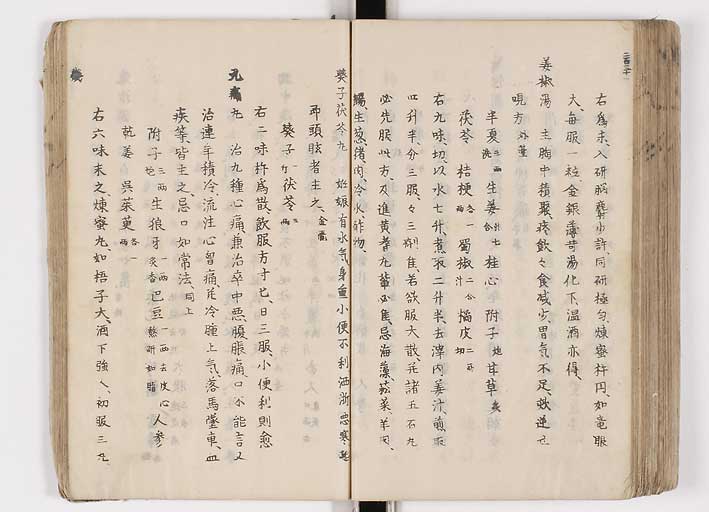 右為末、入研脳麝少許、同研極匀、煉蜜杵円、如竜眼
大、毎服一粒、金銀薄荷湯化下、温酒亦得、
姜椒湯 主胸中積聚痰飲、々食減少、胃気不足、咳逆
半夏 三両 洗 生姜 桂心 附子 炮 甘草 炙
茯苓 桔梗 各一両 蜀椒 二合 汁 橘皮
右九味、切、以水七升、煮取二升半、去滓、内姜汁、煎取
四升半、分三服、々三剤佳、若欲服大散、并諸五石丸、
必先服此方、及進黄耆丸輩必佳、忌海藻、菘菜、羊肉、
餳、生葱、猪肉、冷水、酢物、
葵子茯苓丸 妊娠有水気、身重、小便不利、洒淅悪寒、起
即頭眩者主之、金匱
葵子 茯苓 三両
右二味、杵為散、飲服方寸匕、日三服、小便利則愈
九痛丸 治九種心痛、兼治卒中悪、腹脹痛、口不能言、又
治連年積冷、流注心胸痛、并冷腫上気、落馬墜車、血
疾等、皆主之、忌口如常法、同上
附子 三両 炮 生狼牙 一両 炙香 巴豆 一両 去皮心 熬研如脂 人参
乾姜 呉茱萸 各一両
右六味、末之、煉蜜丸、如梧子大、酒下、強人初服三丸、